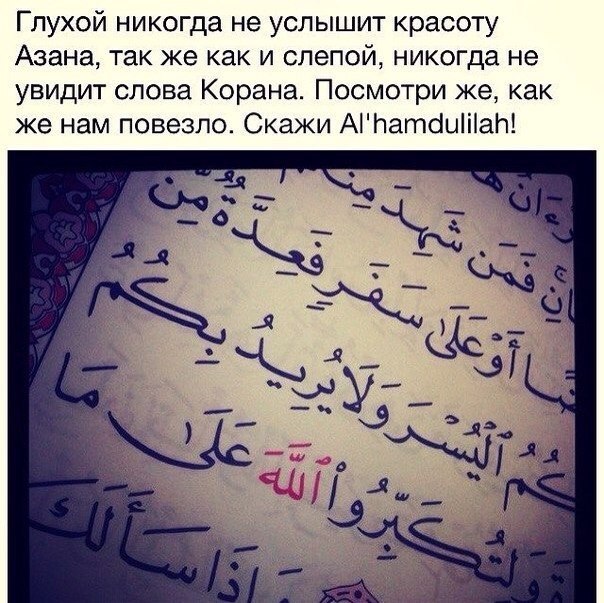 Глухой никогда не услышит красоту
Азана, так же как и слепой, никогда не
увидит слова Корана. Посмотри же, как
же нам повезло. Скажи Al'hamdulilah!
فَمَن شَهِدَ
أَوْ عَلَىٰ سَفَرٍ فَعِدَّةٌ مِّنْ
ٱلْيُسْرَ وَلَا يُرِيدُ بِكُمُ
وَلِتُكَبِّرُوا۟ ٱللَّهَ عَلَىٰ مَا
وَإِذَا سَأَلَكَ